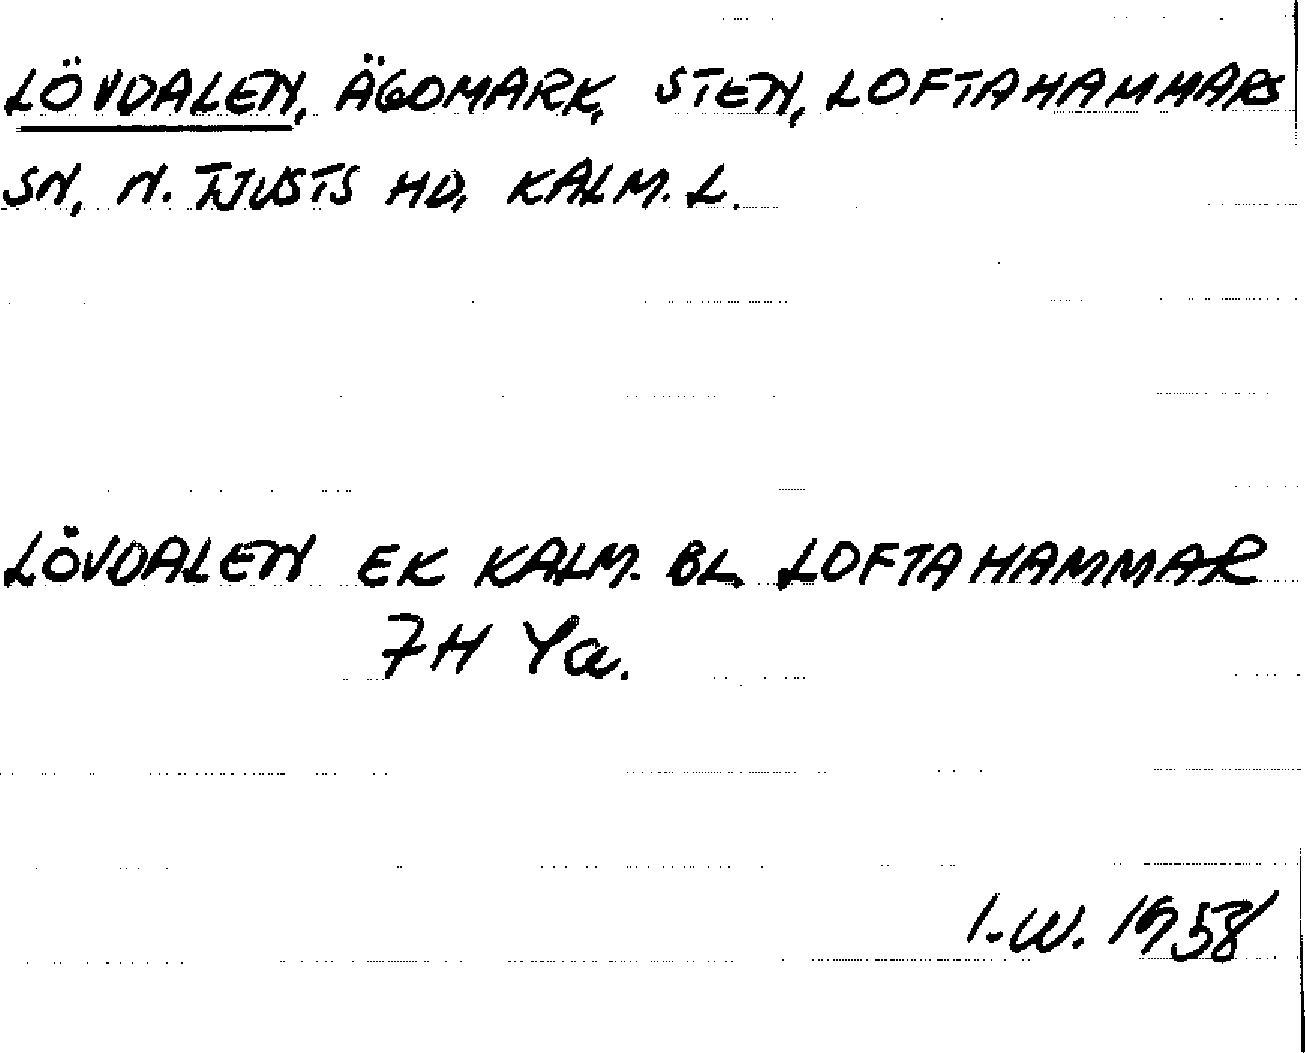 LÖVDALEN, ÄGOMARK, STEN, LOFTAHAMMARS
SN, N. TJUSTS HD, KALM. L.
LÖVDALEN EK KALM. BL. LOFTAHAMMAR
7H Ya.
I.W. 1958